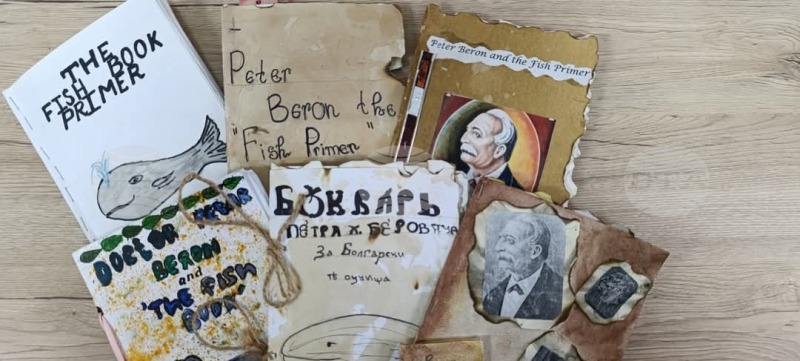 THE
FISH BOOK
PRIMER
Peter
Beron the
"Fish Primer"
Peter Beron and the Fish Primer
DOCTOR PETAR
BERON
and
"THE FISH
BOOK"
БꙊКВАРЬ
ПЕТРА Х. БЕРОВИЧА
За Болгарски
те оучища